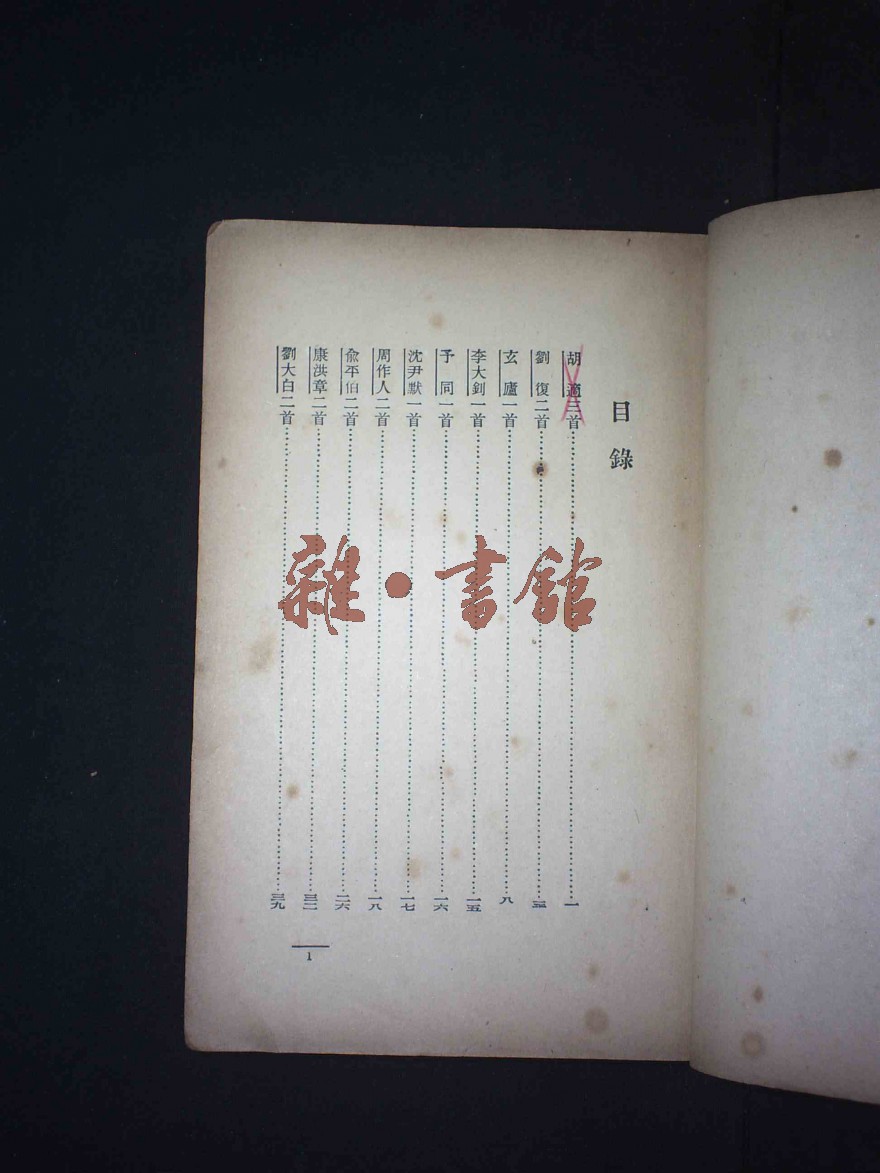 目錄
胡適三首一
劉復二首五
玄廬一首八
李大釗一首一五
予同一首一六
沈尹默一首一七
周作人二首一八
兪平伯二首二六
康洪章二首三二
劉大白二首三九
1
雜·書館